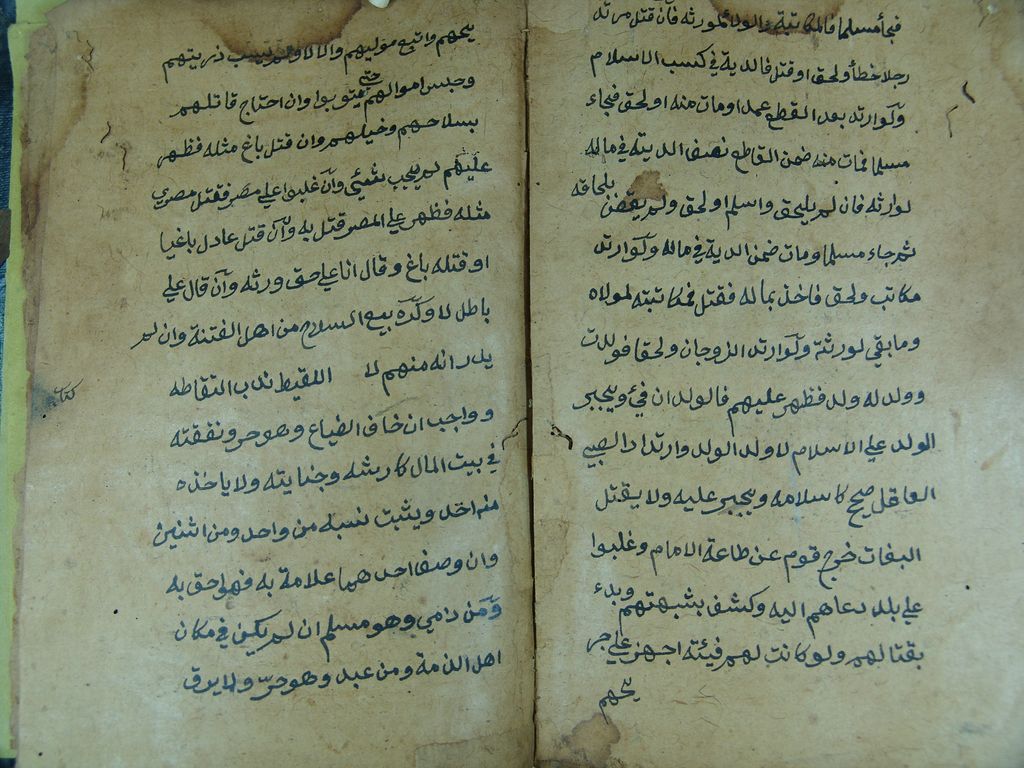 فجأ مسلما فالمكاتبة والولأ لمورثه فان قتل مرتد
رجلا خطأ ولحق او قتل فالدية في كسب الاسلام
ولو ارتد بعد القطع عمدا ومات منه او لحق فجاء
مسلما فمات منه ضمن القاطع نصف الدية في ماله
لوارثه فان لم يلحق واسلم او لحق ولم يقض بلحاقه
ثم جاء مسلما ومات ضمن الدية في ماله ولو ارتد
مكاتب ولحق فاخذ بماله فقتل فمكاتبته لمولاه
وما بقي لورثته ولو ارتد الزوجان ولحقا فولدت
وولد له ولد فظهر عليهم فالولدان فئ ويجبر
الولد علي الاسلام لا ولد الولد وارتداد الصبي
العاقل صحيح كاسلامه ويجبر عليه ولا يقتل
البغات خرج قوم عن طاعة الامام وغلبوا
علي بلد دعاهم اليه وكشف بشبهتهم وبدء
بقتالهم ولو كانت لهم فيئة اجهز علي جر
يحهم
يحهم واتبع موليهم والا لا ولم يسب ذريتهم
وحبس اموالهم حتي يتوبوا وان احتاج قاتلهم
بسلاحهم وخيلهم وان قتل باغ مثله فظهر
عليهم لم يجب شئي وان غلبوا علي مصر فقتل مصري
مثله فظهر علي المصر قتل به وان قتل عادل باغيا
او قتله باغ وقال انا علي حق ورثه وان قال علي
باطل لا وكره بيع السلاح من اهل الفتنة وان لم
يدر انه منهم لا اللقيط ندب التقاطه
وواجب ان خاف الضياع وهو حر ونفقته
في بيت المال كارثه وجنايته ولا ياخذه
منه احد ويثبت نسبه من واحد ومن اثنين
وان وصف احدهما علامة به فهو احق به
ومن ذمي وهو مسلم ان لم يكن في مكان
اهل الذمة ومن عبد وهو حر ولا يرق
كتاب